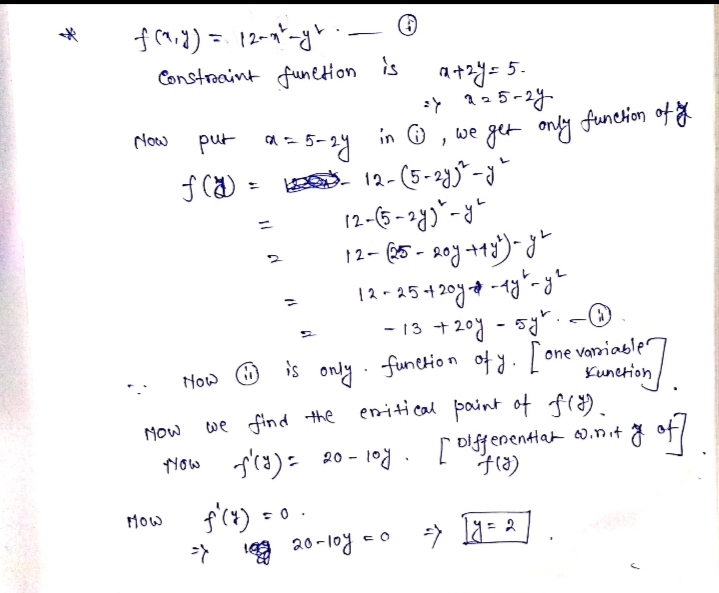 * f(x,y) = 12-x²-y². — (i)
Constraint function is x+2y = 5.
=> x = 5-2y
Now put x = 5-2y in (i), we get only function of y
f(y) = 12-(5-2y)²-y²
= 12-(5-2y)²-y²
= 12-(25-20y+4y²)-y²
= 12-25+20y-4y²-y²
= -13+20y-5y². — (ii).
∴ Now (ii) is only function of y. [one variable function].
Now we find the critical point of f(y).
Now f'(y) = 20-10y. [Differentiat w.r.t y of f(y)]
Now f'(y) = 0.
=> 20-10y = 0 => y = 2.